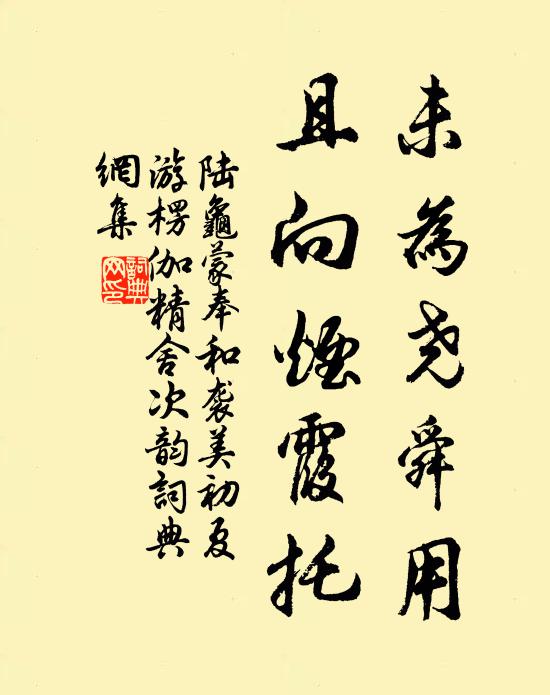 未為尧舜用
且向煙霞托
陆龜蒙奉和袭美初夏
游楞伽精舍次韵詞典
網集
詞典
网印